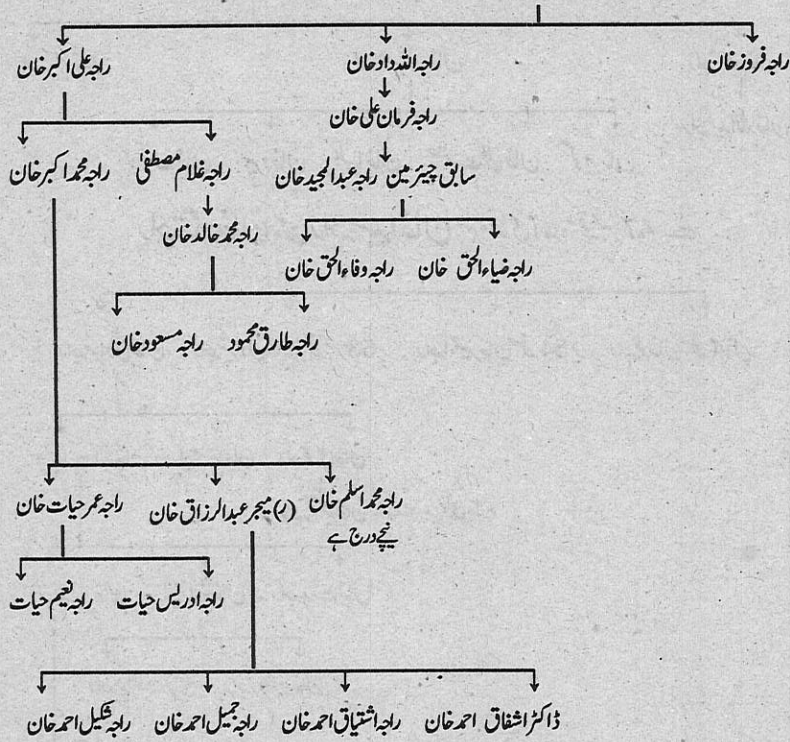 راجہ فروز خان راجہ اللہ داد خان راجہ علی اکبر خان
راجہ فرمان علی خان
سابق چیئرمین راجہ عبدالمجید خان راجہ غلام مصطفیٰ راجہ محمد اکبر خان
راجہ ضیاء الحق خان راجہ وفاء الحق خان راجہ محمد خالد خان
راجہ طارق محمود راجہ مسعود خان
راجہ محمد اسلم خان (ر) میجر عبدالرزاق خان راجہ عمر حیات خان
نیچے درج ہے
راجہ ادریس حیات راجہ نعیم حیات
ڈاکٹر اشفاق احمد خان راجہ اشتیاق احمد خان راجہ جمیل احمد خان راجہ شکیل احمد خان